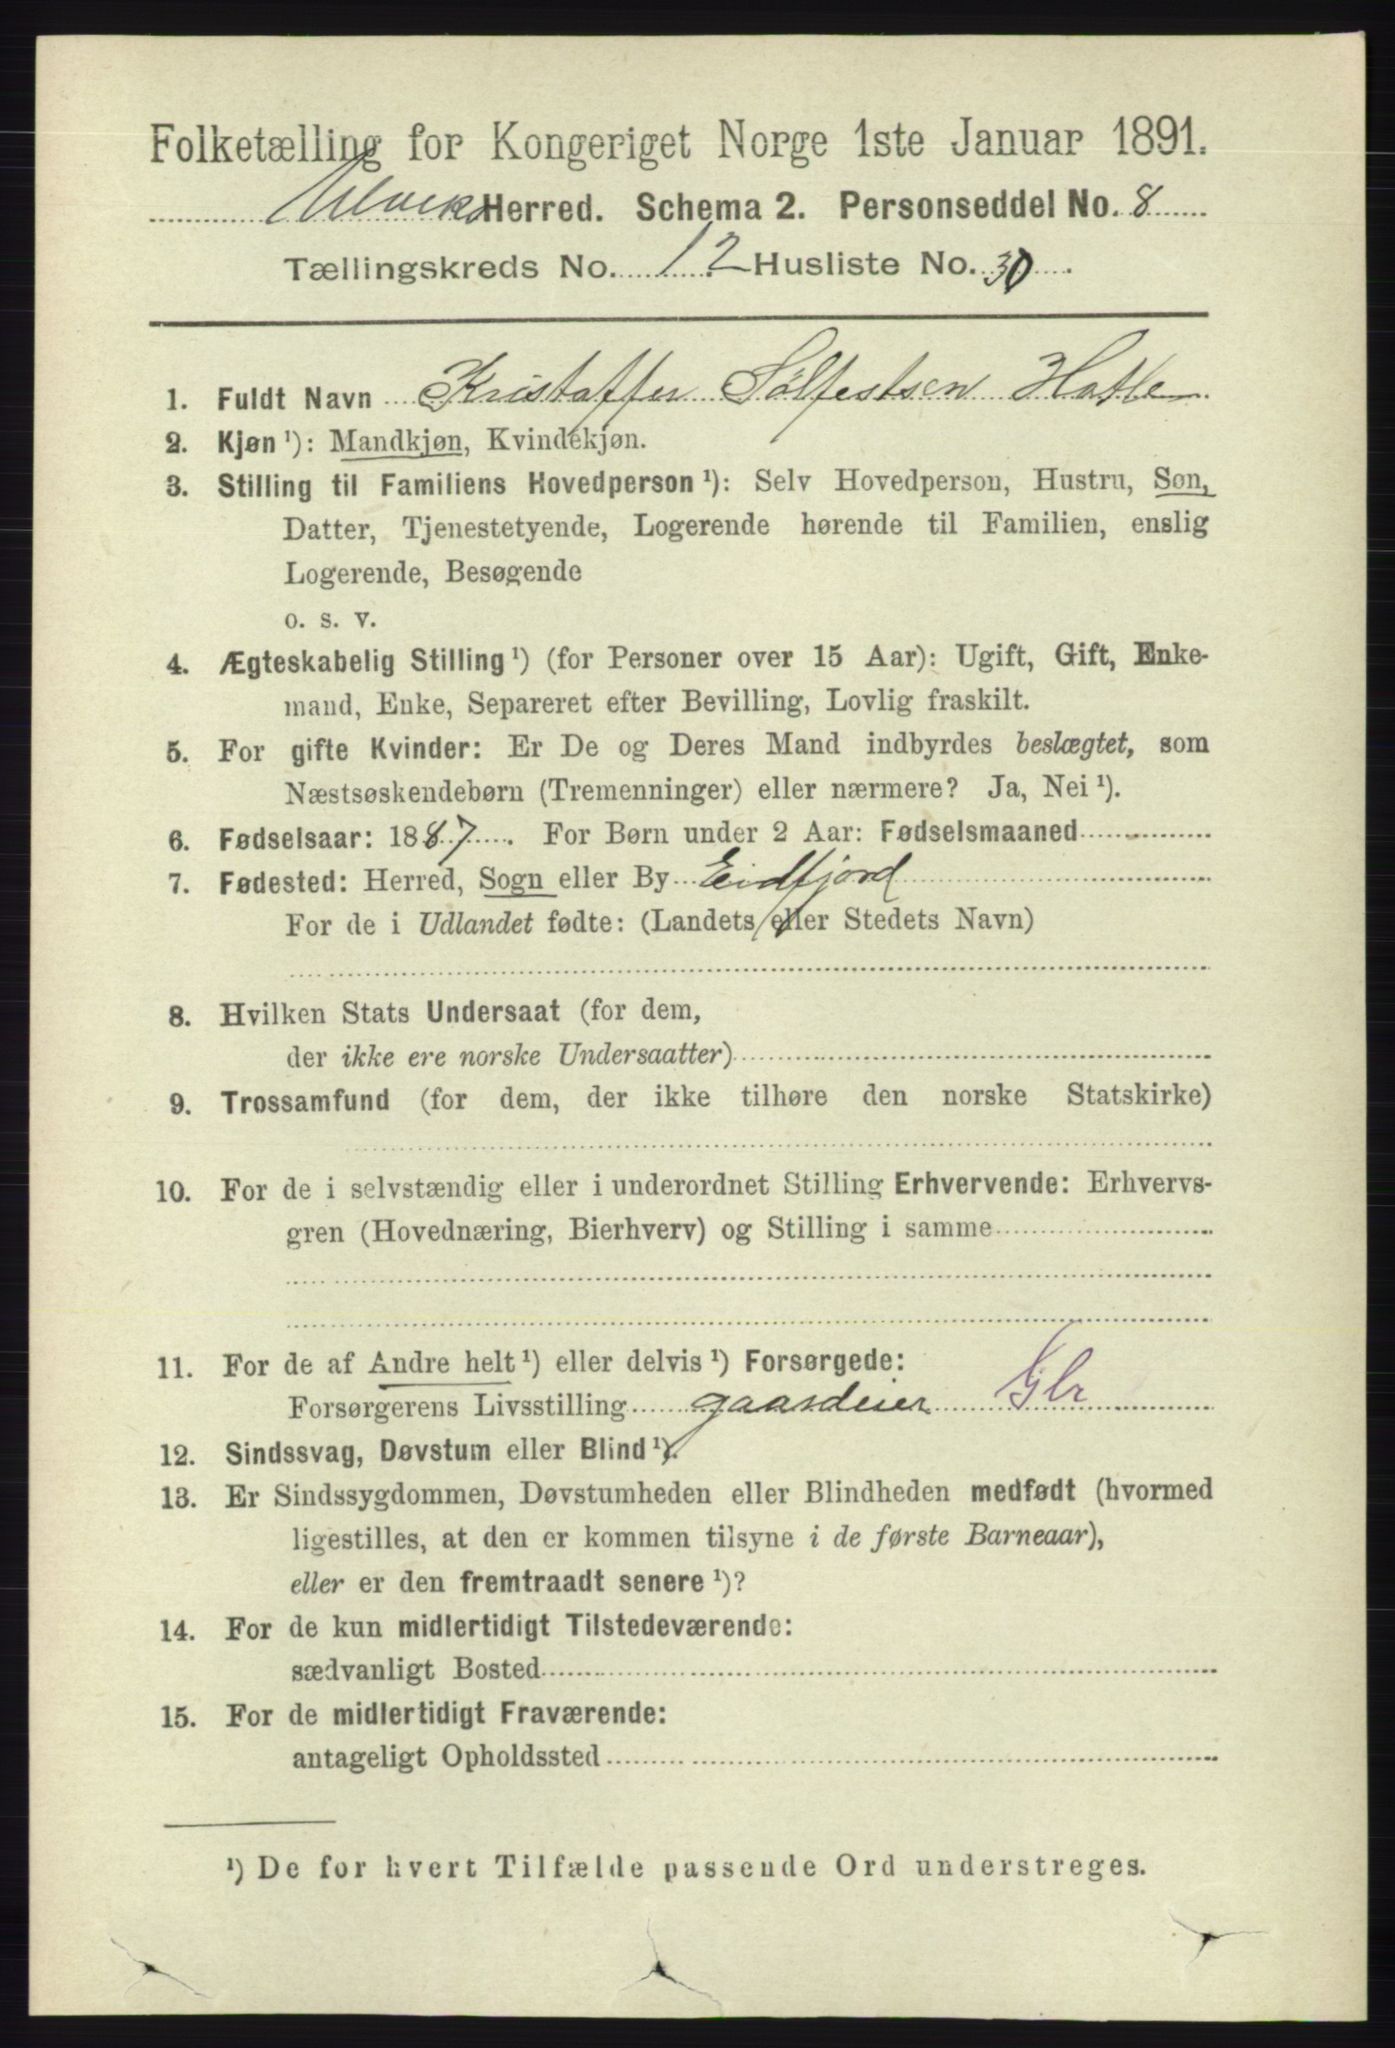 Folketælling for Kongeriget Norge 1ste Januar 1891.
Ulviks Herred. Schema 2. Personseddel No. 8
Tællingskreds No. 12 Husliste No. 30.
1. Fuldt Navn Kristoffer Sølfestsen Hatle.
2. Kjøn ¹): Mandkjøn, Kvindekjøn.
3. Stilling til Familiens Hovedperson ¹): Selv Hovedperson, Hustru, Søn,
Datter, Tjenestetyende, Logerende hørende til Familien, enslig
Logerende, Besøgende
o. s. v.
4. Ægteskabelig Stilling ¹) (for Personer over 15 Aar): Ugift, Gift, Enke-
mand, Enke, Separeret efter Bevilling, Lovlig fraskilt.
5. For gifte Kvinder: Er De og Deres Mand indbyrdes beslægtet, som
Næstsøskendebørn (Tremenninger) eller nærmere? Ja, Nei ¹).
6. Fødselsaar: 1887. For Børn under 2 Aar: Fødselsmaaned
7. Fødested: Herred, Sogn eller By Eidfjord
For de i Udlandet fødte: (Landets eller Stedets Navn)
8. Hvilken Stats Undersaat (for dem,
der ikke ere norske Undersaatter)
9. Trossamfund (for dem, der ikke tilhøre den norske Statskirke)
10. For de i selvstændig eller i underordnet Stilling Erhvervende: Erhvervs-
gren (Hovednæring, Bierhverv) og Stilling i samme
11. For de af Andre helt ¹) eller delvis ¹) Forsørgede:
Forsørgerens Livsstilling gaardeier Gbr
12. Sindssvag, Døvstum eller Blind ¹).
13. Er Sindssygdommen, Døvstumheden eller Blindheden medfødt (hvormed
ligestilles, at den er kommen tilsyne i de første Barneaar),
eller er den fremtraadt senere ¹)?
14. For de kun midlertidigt Tilstedeværende:
sædvanligt Bosted
15. For de midlertidigt Fraværende:
antageligt Opholdssted
¹) De for hvert Tilfælde passende Ord understreges.